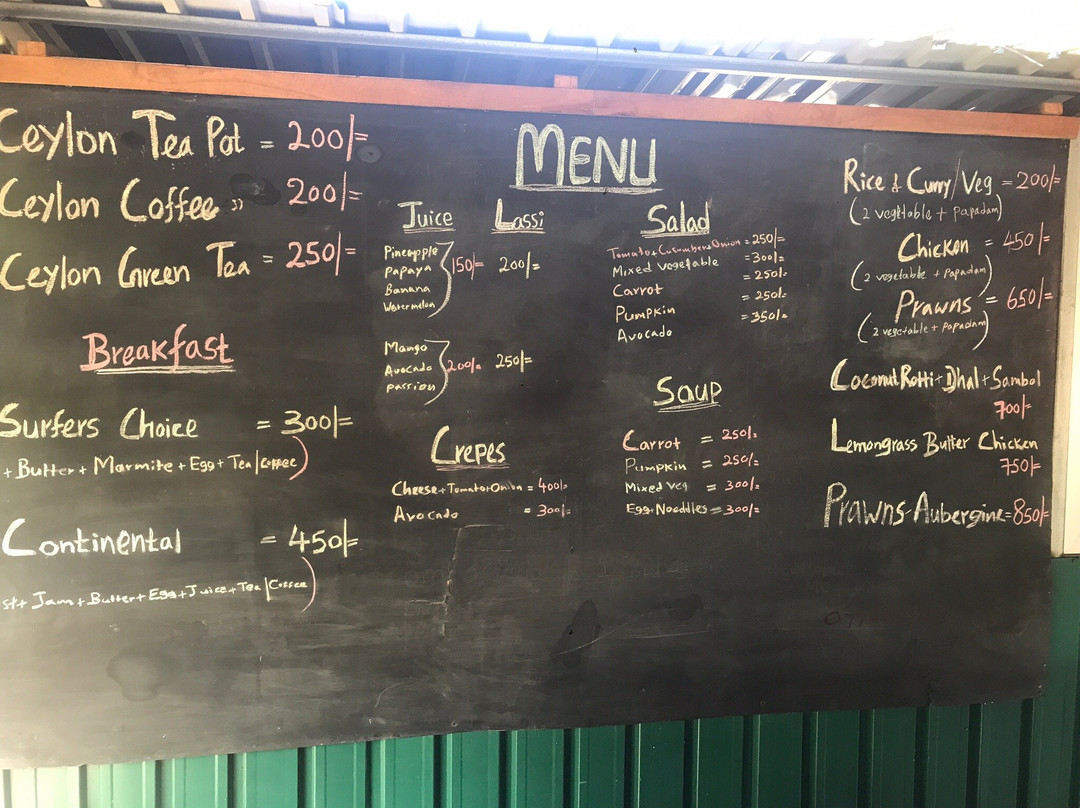 MENU
Ceylon Tea Pot = 200/=
Ceylon Coffee " 200/=
Ceylon Green Tea = 250/=
Breakfast
Surfers Choice = 300/=
+ Butter + Marmite + Egg + Tea/Coffee)
Continental = 450/=
st + Jam + Butter + Egg + Juice + Tea/Coffee)
Juice Lassi
Pineapple
Papaya 150/= 200/=
Banana
Watermelon
Mango
Avocado 200/= 250/=
passion
Crepes
Cheese + Tomato + Onion = 400/=
Avocado = 300/=
Salad
Tomato + Cucumber + Onion = 250/=
Mixed vegetable = 300/=
Carrot = 250/=
Pumpkin = 250/=
Avocado = 350/=
Soup
Carrot = 250/=
Pumpkin = 250/=
Mixed Veg = 300/=
Egg + Noodles = 300/=
Rice & Curry/Veg = 200/=
(2 vegetable + papadam)
Chicken = 450/=
(2 vegetable + papadam)
Prawns = 650/=
(2 vegetable + papadam)
Coconut Rotti + Dhal + Sambol
700/=
Lemongrass Butter Chicken
750/=
Prawns Aubergine = 850/=